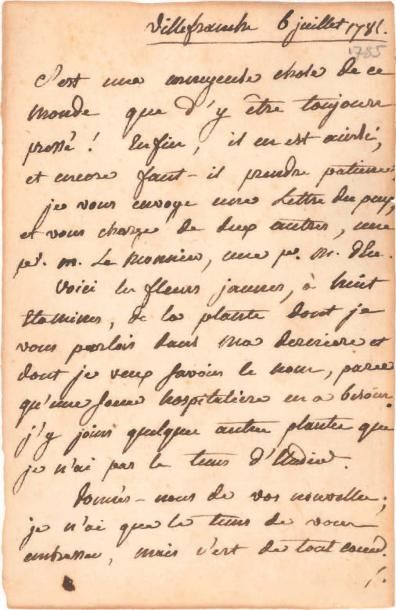 Villefranche 6 juillet 1785.
1785
C'est une ennuyeuse chose de ce
monde que d'y être toujours
pressé! Enfin, il en est ainsi,
et encore faut-il prendre patience,
je vous envoye une Lettre du pays,
et vous charge de deux autres, une
pr. m. Le monnier, une pr. m. d'eu.
Voici les fleurs jaunes, à huit
Etamines, de la plante dont je
vous parlois dans ma derniere et
dont je veux savoir le nom, parce
qu'une soeur hospitaliere en a besoin.
j'y joins quelque autre plante que
je n'ai pas le tems d'etudier.
donnés-nous de vos nouvelles;
je n'ai que le tems de vous
embrasser, mais c'est de tout coeur.